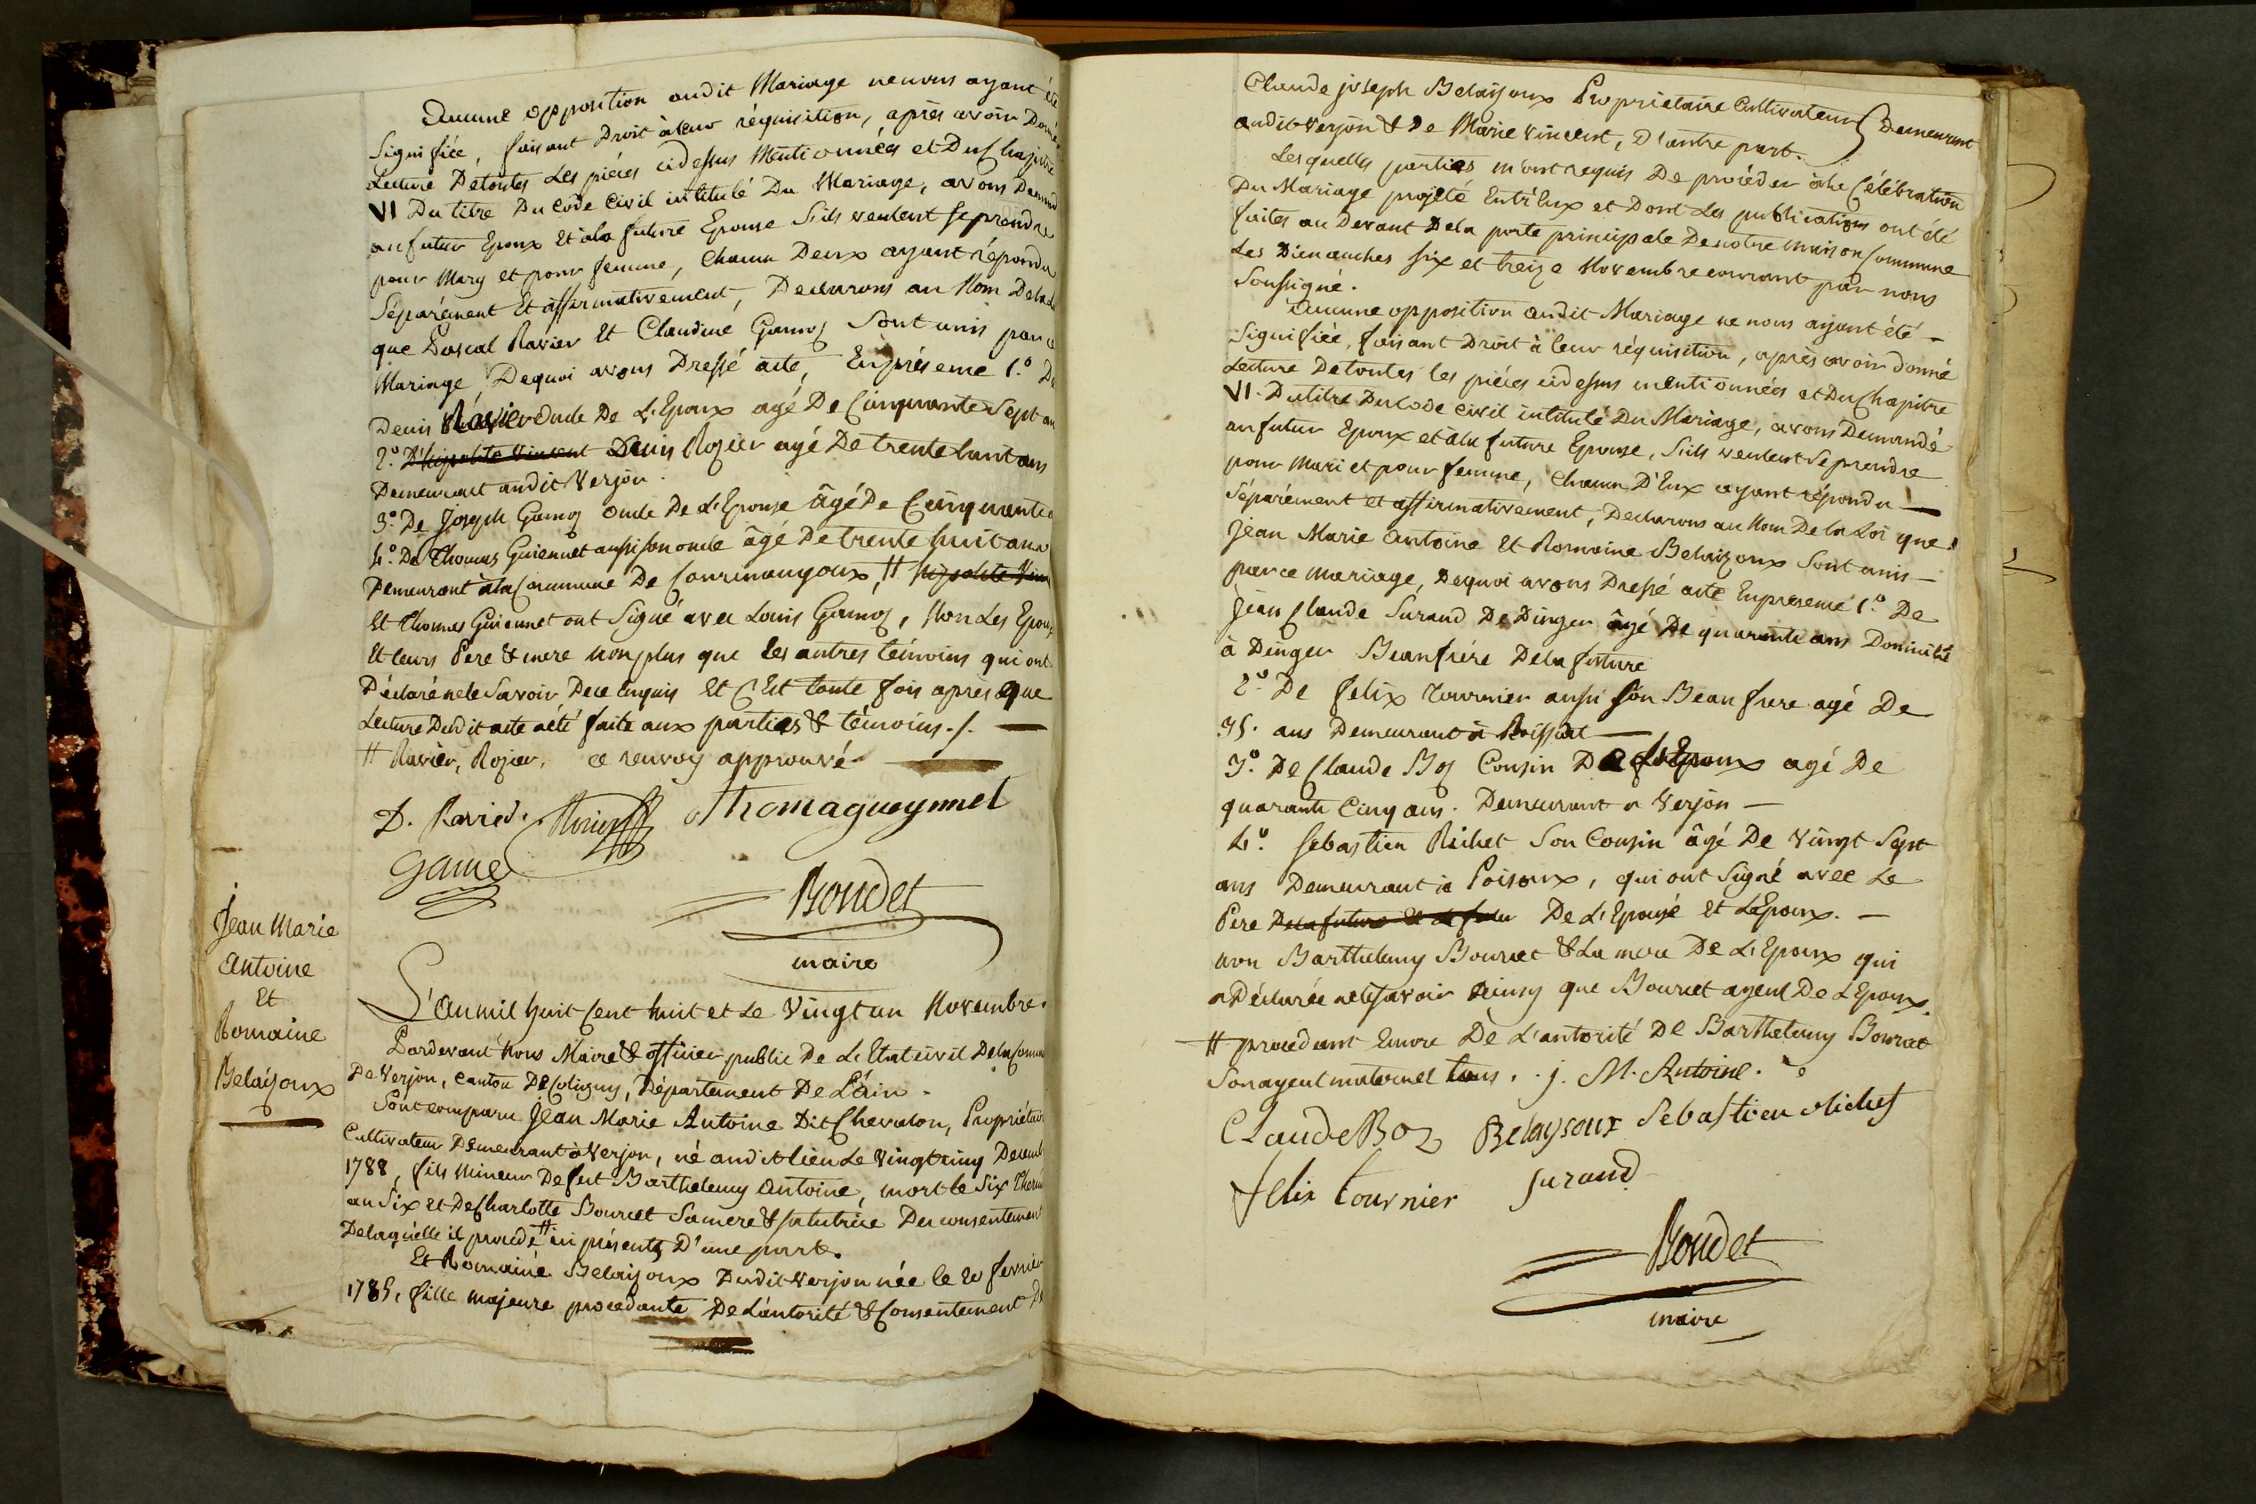 Aucune opposition audit Mariage ne nous ayant été
Signifiée, faisant Droit à leur réquisition, après avoir Donné
Lecture De toutes Les pièces cidessus Mentionnées et Du Chapitre
VI Du titre Du Code Civil intitulé Du Mariage, avons Demand
au futur Epoux Et à la future Epouse S'ils veulent se prendre
pour Mary et pour femme, Chacun Deux ayant répondu
Séparément Et affirmativement, Declarons au Nom De la
que Pascal Ravier Et Claudine Gamoz Sont unis par ce
Mariage, Dequoi avons Dressé acte, En présence 1.° De
Denis Ravier Oncle De L'Epoux agé De Cinquante Sept an
2.° D'hipolite Vincent Denis Rozier agé De trente huit ans
Demeurant audit Verjon.
3.° De Joseph Gamoz oncle De L'Epouse âgé De Cinquante
4.° De Thomas Guiennet aussi son oncle âgé De trente huit ans
Demeurant à la Commune De Courmangoux, # hipolite Vin
Et Thomas Guiennet ont Signé avec Louis Gamoz, Non Les Epoux
Et leurs Pere & mere non plus que les autres témoins qui ont
Déclaré ne le Savoir De ce Enquis Et C'Est toute fois après que
Lecture Dudit acte a été faite aux parties & témoins ./.
# Ravier, Rozier, ce renvoy approuvé
D. Ravied. Rozier Thomagueynnet
Game
Bondet
maire
Jean Marie
Antoine
Et
Romaine
Belaijoux
L'An mil huit Cent huit et Le Vingt un Novembre.
Pardevant Nous Maire & officier public De L'Etat civil De la Comm
De Verjon, Canton De Coligny, Département De L'Ain.
Sont comparu Jean Marie Antoine Dit Chevalon, Propriétair
Cultivateur Demeurant à Verjon, né audit lieu Le Vingt cinq Decemb
1788, fils Mineur De feu Barthelemy Antoine, mort le Six Therm
an Six et De Charlotte Bourcet Sa mere & Sa tutrice Du consentement
De laquelle il procède # ici présente D'une part.
Et Romaine Belaijoux Dudit Verjon née le 20 fevrier
1785, fille majeure procedante De L'autorité & Consentement De
Claude joseph Belaijoux Propriétaire Cultivateur Demeurant
audit Verjon & De Marie Vincent, D'autre part.
Lesquelles parties m'ont requis De procéder à la Célébration
Du Mariage projeté Entr'Eux et Dont Les publications ont été
faites au Devant De la porte principale De notre Maison Commune
Les Dimanches Six et treize Novembre courant par nous
Soussigné.
Aucune opposition audit Mariage ne nous ayant été
Signifiée, faisant Droit à leur réquisition, après avoir donné
Lecture De toutes les pièces cidessus mentionnées et Du Chapitre
VI. Du titre Du Code civil intitulé Du Mariage, avons Demandé
au futur Epoux et à la future Epouse, S'ils veulent Se prendre
pour Mari et pour femme, Chacun D'Eux ayant répondu
Séparément et affirmativement, Declarons au Nom De la Loi que
Jean Marie Antoine Et Romaine Belaijoux Sont unis
par ce mariage, Dequoi avons Dressé acte En présence 1.° De
Jean Claude Surand De Dingier âgé De quarante ans Domicilié
à Dingier Beaufrére De la future
2.° De felix Tournier aussi Son Beau frere agé De
35. ans Demeurant à Roissiat
3.° De Claude Boz Cousin De L'Epoux agé De
quarante Cinq ans. Demeurant a Verjon
4.° Sebastien Richet Son Cousin âgé De Vingt Sept
ans Demeurant à Poisoux, qui ont Signé avec Le
Pere De la future Et le futur De L'Epouse Et L'Epoux.
non Barthelemy Bourcet & La mere De L'Epoux qui
a Déclarée ne le Savoir ainsy que Bourcet ayeul De L'Epoux.
# procedant Encore De L'autorité De Barthelemy Bourcet
Son ayeul maternel . j. M. Antoine.
Claude Boz Belaysoux Sebastien Richet
felix tournier Surand
Bondet
maire